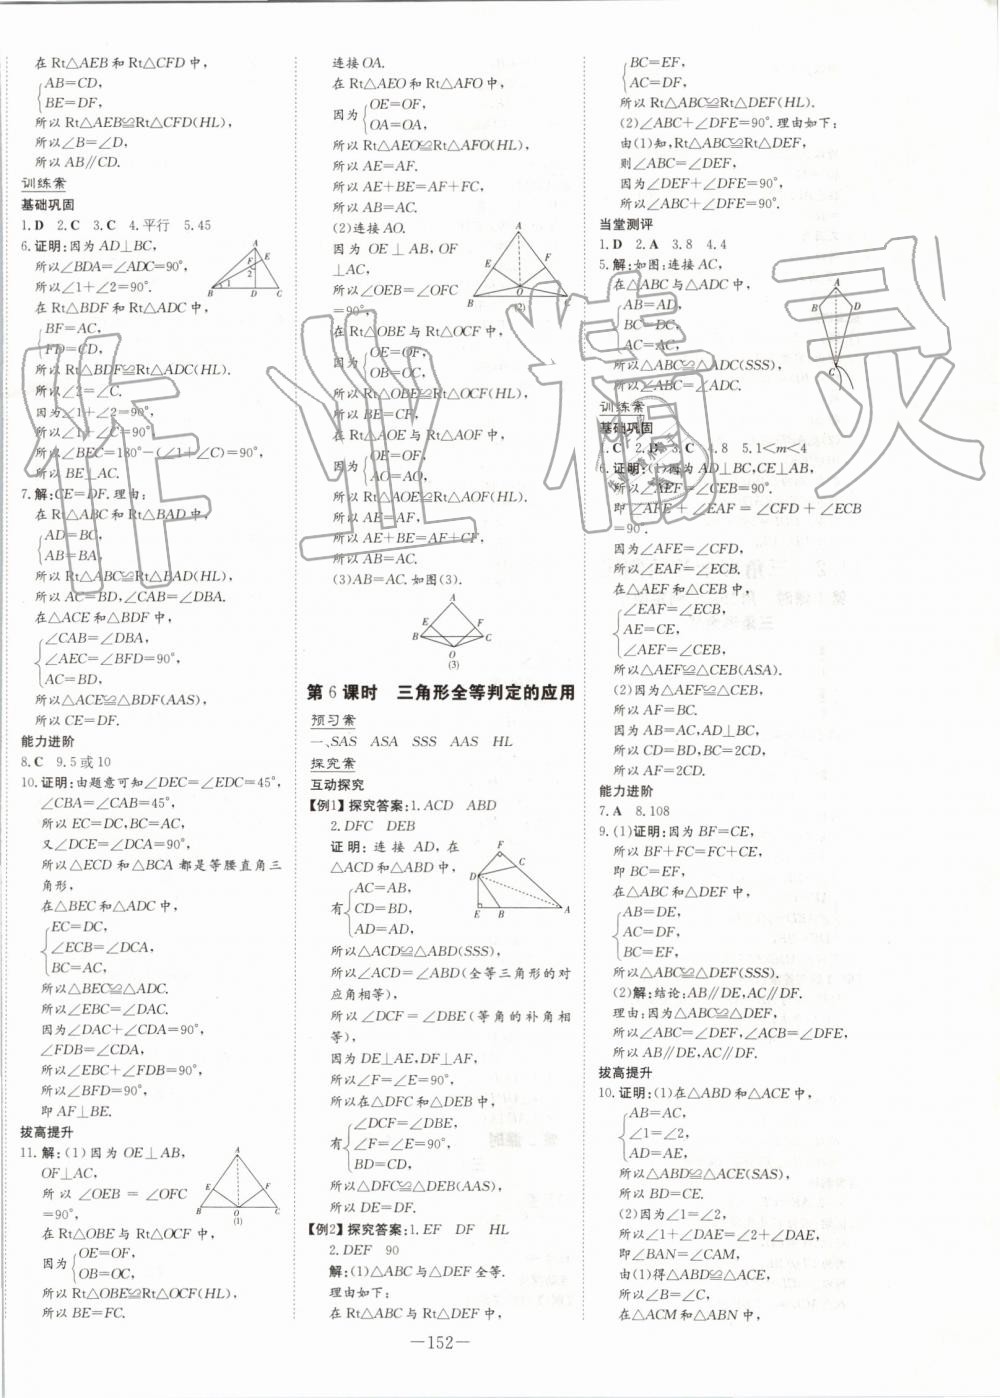 在 Rt△AEB 和 Rt△CFD 中,
AB=CD,
BE=DF,
所以 Rt△AEB≌Rt△CFD(HL),
所以∠B=∠D,
所以 AB∥CD.
训练案
基础巩固
1.D 2.C 3.C 4.平行 5.45
6.证明:因为 AD⊥BC,
所以∠BDA=∠ADC=90°,
所以∠1+∠2=90°.
在 Rt△BDF 和 Rt△ADC 中,
BF=AC,
FD=CD,
所以 Rt△BDF≌Rt△ADC(HL).
所以∠2=∠C.
因为∠1+∠2=90°,
所以∠1+∠C=90°
所以∠BEC=180°-(∠1+∠C)=90°,
所以 BE⊥AC.
7.解:CE=DF.理由:
在 Rt△ABC 和 Rt△BAD 中,
AD=BC,
AB=BA,
所以 Rt△ABC≌Rt△BAD(HL),
所以 AC=BD,∠CAB=∠DBA.
在△ACE 和△BDF 中,
∠CAB=∠DBA,
∠AEC=∠BFD=90°,
AC=BD,
所以△ACE≌△BDF(AAS),
所以 CE=DF.
能力进阶
8.C 9.5 或 10
10.证明:由题意可知∠DEC=∠EDC=45°,
∠CBA=∠CAB=45°,
所以 EC=DC,BC=AC,
又∠DCE=∠DCA=90°,
所以△ECD 和△BCA 都是等腰直角三
角形,
在△BEC 和△ADC 中,
EC=DC,
∠ECB=∠DCA,
BC=AC,
所以△BEC≌△ADC.
所以∠EBC=∠DAC.
因为∠DAC+∠CDA=90°,
∠FDB=∠CDA,
所以∠EBC+∠FDB=90°,
所以∠BFD=90°,
即 AF⊥BE.
拔高提升
11.解:(1)因为 OE⊥AB,
OF⊥AC,
所以∠OEB=∠OFC
=90°,
在 Rt△OBE 与 Rt△OCF 中,
因为
OE=OF,
OB=OC,
所以 Rt△OBE≌Rt△OCF(HL),
所以 BE=FC.
A
E
F
B
O
C
(1)
连接 OA.
在 Rt△AEO 和 Rt△AFO 中,
因为
OE=OF,
OA=OA,
所以 Rt△AEO≌Rt△AFO(HL),
所以 AE=AF.
所以 AE+BE=AF+FC,
所以 AB=AC.
(2)连接 AO.
因为 OE⊥AB,OF
⊥AC,
所以∠OEB=∠OFC
=90°,
在 Rt△OBE 与 Rt△OCF 中,
因为
OE=OF,
OB=OC,
所以 Rt△OBE≌Rt△OCF(HL),
所以 BE=CF,
在 Rt△AOE 与 Rt△AOF 中,
因为
OE=OF,
AO=AO,
所以 Rt△AOE≌Rt△AOF(HL).
所以 AE=AF,
所以 AE+BE=AF+CF,
所以 AB=AC.
(3)AB=AC.如图(3).
A
E
F
B
C
O
(3)
第 6 课时 三角形全等判定的应用
预习案
一、SAS ASA SSS AAS HL
探究案
互动探究
【例1】探究答案:1.ACD ABD
2.DFC DEB
证明:连接 AD,在
△ACD 和△ABD 中,
有
AC=AB,
CD=BD,
AD=AD,
所以△ACD≌△ABD(SSS),
所以∠ACD=∠ABD(全等三角形的对
应角相等),
所以∠DCF=∠DBE(等角的补角相
等),
因为 DE⊥AE,DF⊥AF,
所以∠F=∠E=90°,
所以在△DFC 和△DEB 中,
有
∠DCF=∠DBE,
∠F=∠E=90°,
BD=CD,
所以△DFC≌△DEB(AAS),
所以 DE=DF.
【例2】探究答案:1.EF DF HL
2.DEF 90
解:(1)△ABC 与△DEF 全等.
理由如下:
在 Rt△ABC 与 Rt△DEF 中,
BC=EF,
AC=DF,
所以 Rt△ABC≌Rt△DEF(HL).
(2)∠ABC+∠DFE=90°.理由如下:
由(1)知,Rt△ABC≌Rt△DEF,
则∠ABC=∠DEF,
因为∠DEF+∠DFE=90°,
所以∠ABC+∠DFE=90°.
当堂测评
1.D 2.A 3.8 4.4
5.解:如图:连接 AC,
在△ABC 与△ADC 中,
AB=AD,
BC=DC,
AC=AC,
所以△ABC≌△ADC(SSS),
所以∠ABC=∠ADC.
训练案
基础巩固
1.C 2.D 3.C 4.8 5.1<m<4
6.证明:(1)因为 AD⊥BC,CE⊥AB,
所以∠AEF=∠CEB=90°.
即∠AFE+∠EAF=∠CFD+∠ECB
=90°.
因为∠AFE=∠CFD,
所以∠EAF=∠ECB.
在△AEF 和△CEB 中,
∠EAF=∠ECB,
AE=CE,
∠AEF=∠CEB,
所以△AEF≌△CEB(ASA).
(2)因为△AEF≌△CEB,
所以 AF=BC.
因为 AB=AC,AD⊥BC,
所以 CD=BD,BC=2CD,
所以 AF=2CD.
能力进阶
7.A 8.108
9.(1)证明:因为 BF=CE,
所以 BF+FC=FC+CE,
即 BC=EF,
在△ABC 和△DEF 中,
AB=DE,
AC=DF,
BC=EF,
所以△ABC≌△DEF(SSS).
(2)解:结论:AB∥DE,AC∥DF.
理由:因为△ABC≌△DEF,
所以∠ABC=∠DEF,∠ACB=∠DFE,
所以 AB∥DE,AC∥DF.
拔高提升
10.证明:(1)在△ABD 和△ACE 中,
AB=AC,
∠1=∠2,
AD=AE,
所以△ABD≌△ACE(SAS),
所以 BD=CE.
(2)因为∠1=∠2,
所以∠1+∠DAE=∠2+∠DAE,
即∠BAN=∠CAM,
由(1)得△ABD≌△ACE,
所以∠B=∠C,
在△ACM 和△ABN 中,
—152—
作业精灵